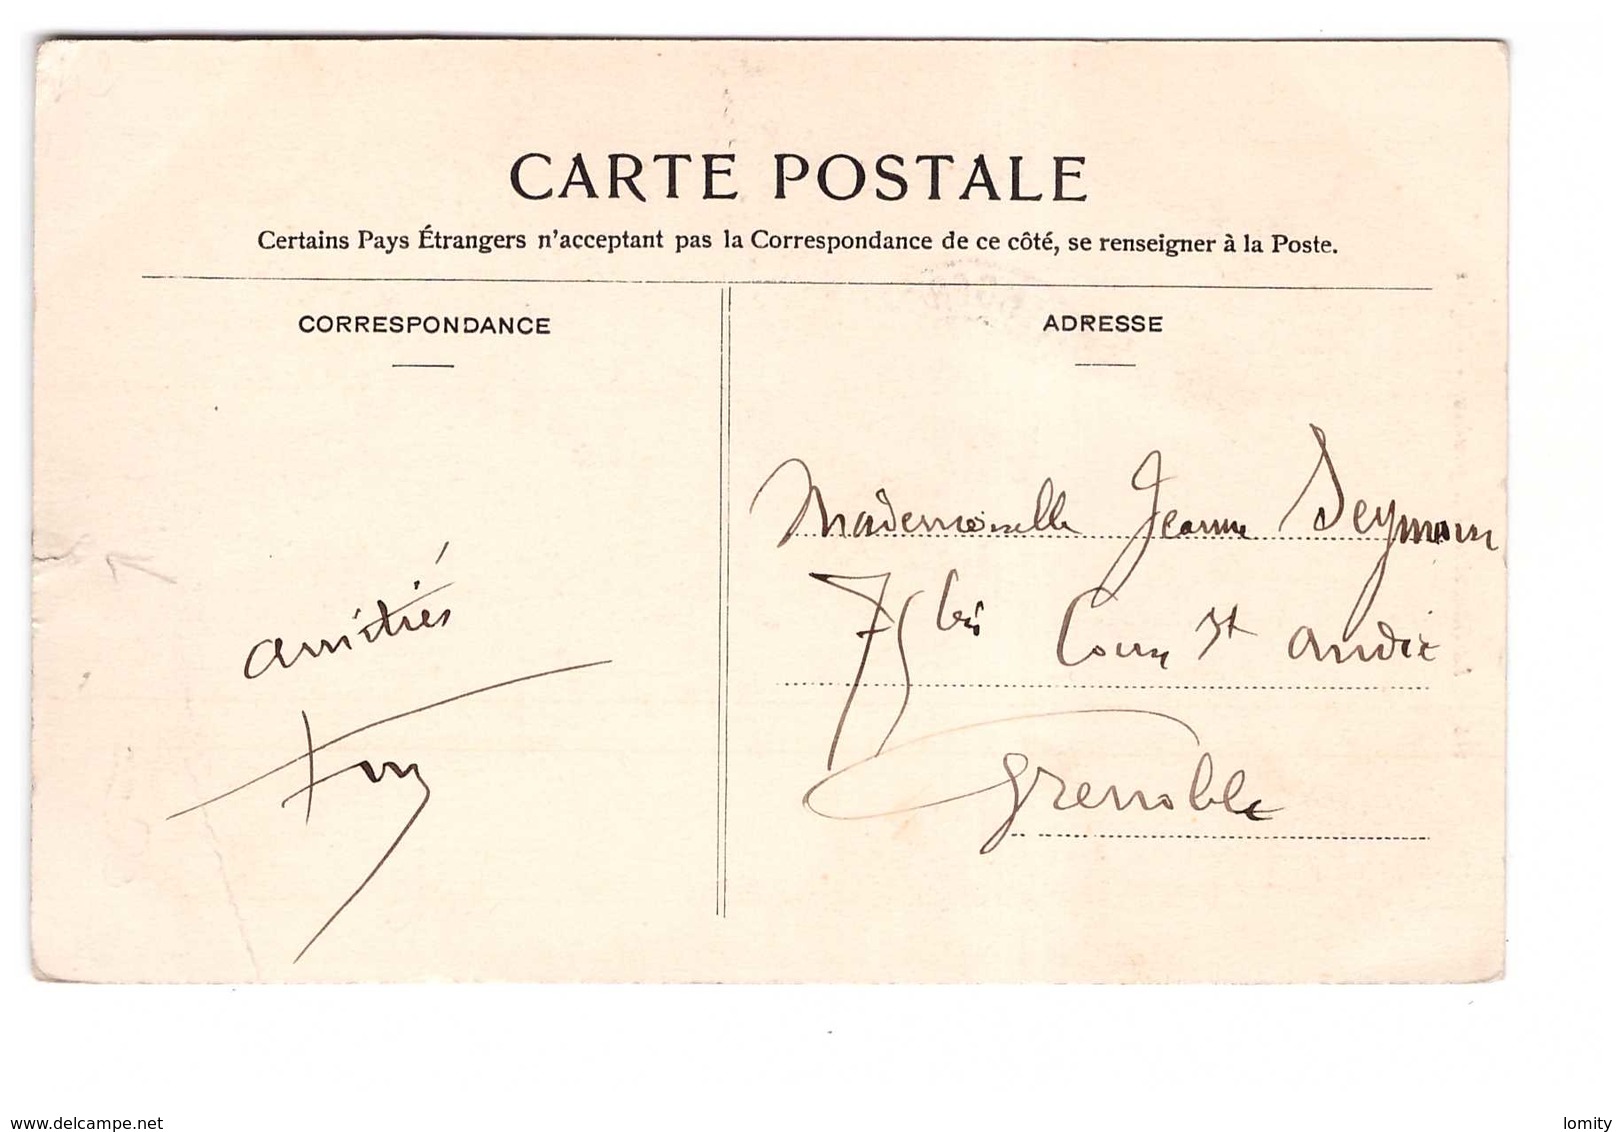 CARTE POSTALE
Certains Pays Étrangers n'acceptant pas la Correspondance de ce côté, se renseigner à la Poste.
CORRESPONDANCE
amitiés
ADRESSE
Mademoiselle Jeanne
75 bis Cours St André
Grenoble
www.delcampe.net
lomity